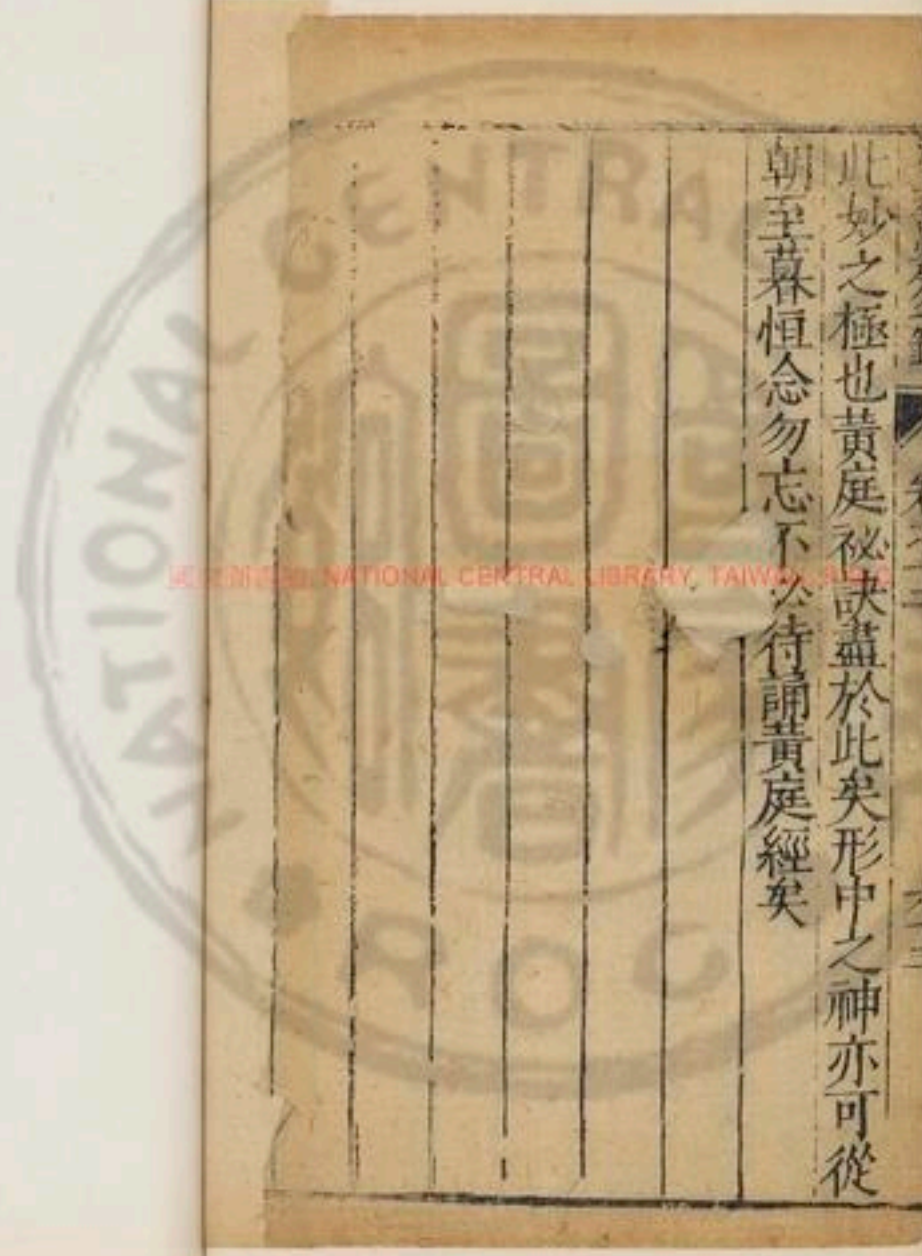 此妙之極也黃庭祕訣盡於此矣形中之神亦可從
朝至暮恒念勿忘不必待誦黃庭經矣
NATIONAL CENTRAL LIBRARY, TAIWAN